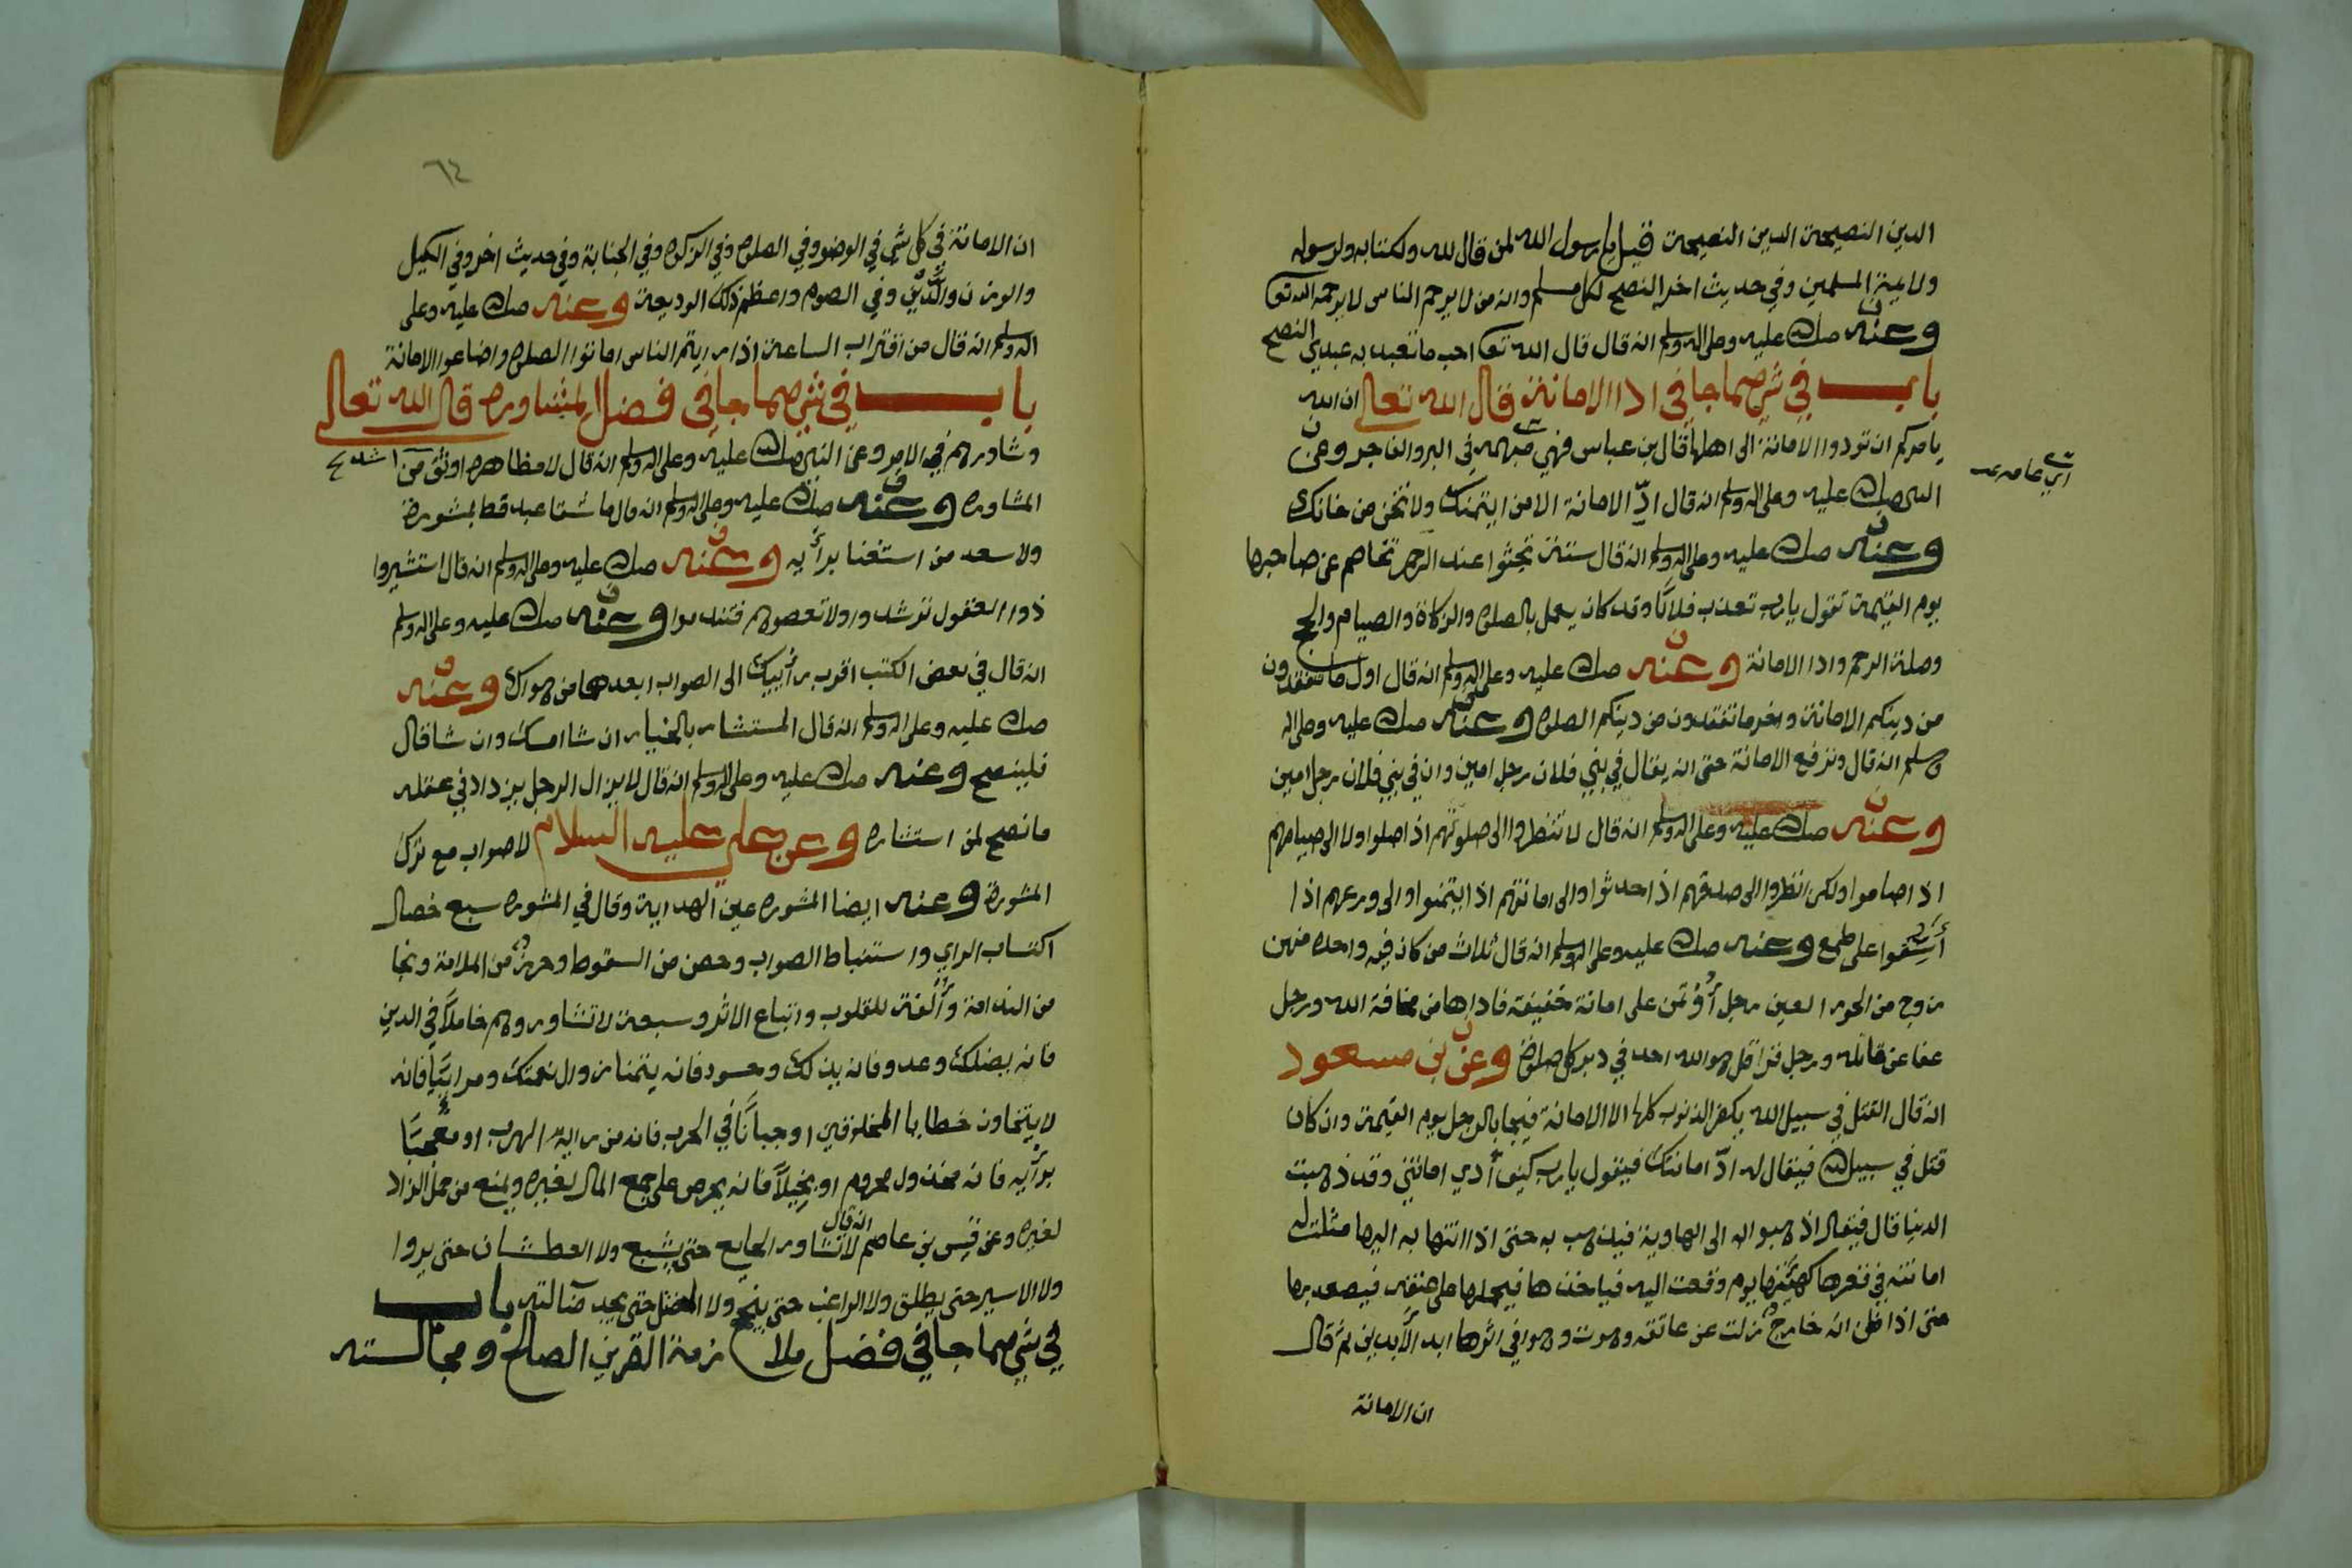 الدين النصيحة الدين النصيحة قيل يا رسول الله لمن قال لله ولكتابه ولرسوله
ولايمة المسلمين وفي حديث اخر النصح لكل مسلم وانه من لا يرحم الناس لا يرحمه الله تعا
وعنه صلى الله عليه وعلى اله وسلم انه قال قال الله تعا احب ما تعبد به عبدي النصح
باب في شي مما جا في ادا الامانة قال الله تعالى ان الله
يامركم ان تودوا الامانة الى اهلها قال بن عباس فهي مبهمه في البر والفاجر وعن
اي عامه
النبي صلى الله عليه وعلى اله وسلم انه قال ادّ الامانة الا من ايتمنك ولا تخن من خانك
وعنه صلى الله عليه وعلى اله وسلم انه قال ستة تجثوا عند الرحم تخاصم عن صاحبها
يوم القيمة تقول يا رب تعذب فلانًا وقد كان يعمل بالصلوة والزكاة والصيام والحج
وصلة الرحم وادا الامانة وعنه صلى الله عليه وعلى اله وسلم انه قال اول ما تفقدون
من دينكم الامانة واخر ما تفقدون من دينكم الصلوه وعنه صلى الله عليه وعلى اله
وسلم انه قال وترفع الامانة حتى انه يقال في بني فلان رجل امين وان في بني فلان رجل امين
وعنه صلى الله عليه وعلى اله وسلم انه قال لا تنظروا الى صلوتهم اذا صلوا ولا الى صيامهم
اذا صاموا ولكن انظروا الى صدقهم اذا حدثوا والى امانتهم اذا ايتمنوا والى ورعهم اذا
على طمع وعنه صلى الله عليه وعلى اله وسلم انه قال ثلاث من كان فيه واحده منهن
زوج من الحور العين رجل أؤتمن على امانة خفيفة فاداها من مخافة الله ورجل
عفا عن قاتله ورجل قرا قل هو الله احد في دبر كل صلوة وعن بن مسعود
انه قال القتل في سبيل الله يكفر الذنوب كلها الا الامانة فيجا بالرجل يوم القيمة وان كان
قتل في سبيل الله فيقال له ادّ امانتك فيقول يا رب كيف أدي امانتي وقد ذهبت
الدنيا قال فيقال اذهبوا به الى الهاوية فيذهب به حتى اذا انتها به اليها مثلت له
امانته في قعرها كهيئتها يوم دفعت اليه فياخذها فيحملها على عنقه فيصعد بها
حتى اذا ظن انه خارجٌ نزلت عن عاتقه وهوت وهوا في اثرها ابد الأبدين ثم قال
ان الامانة
٦٤
ان الامانة في كل شي في الوضو وفي الصلوة وفي الزكوة وفي الجنابة وفي حديث اخر وفي الكيل
والوزن والدَّين وفي الصوم واعظم ذلك الوديعة وعنه صلى الله عليه وعلى
اله وسلم انه قال من اقتراب الساعة اذا رايتم الناس اماتوا الصلوة واضاعوا الامانة
باب في شي مما جا في فضل المشاوره قال الله تعالى
وشاورهم في الامر وعن النبي صلى الله عليه وعلى اله وسلم انه قال لا مظاهره اوثق من
المشاوره وعنه صلى الله عليه وعلى اله وسلم انه قال ما شقا عبد قط بمشورة
ولا سعد من استغنا برأيه وعنه صلى الله عليه وعلى اله وسلم انه قال استشيروا
ذوا العقول ترشدوا ولا تعصوهم فتندموا وعنه صلى الله عليه وعلى اله وسلم
انه قال في بعض الكتب اقرب رأييك الى الصواب ابعدهما من هواك وعنه
صلى الله عليه وعلى اله وسلم انه قال المستشار بالخيار ان شا امسك وان شا قال
فلينصح وعنه صلى الله عليه وعلى اله وسلم انه قال لا يزال الرجل يزداد في عقله
ما نصح لمن استشاره وعن علي عليه السلام لا صواب مع ترك
المشورة وعنه ايضا المشوره عين الهداية وقال في المشوره سبع خصال
اكتساب الراي واستنباط الصواب وحصن من السقوط وحرزٌ من الملامة ونجا
من الندامة وأُلفة للقلوب واتباع الاثر وسبعة لا تشاورهم خاملاً في الدين
فانه يضلك وعدو فانه يذلك وحسود فانه يتمنا زوال نعمتك ومرائيًا فانه
اوجبانًا في الحرب فانه من رايه الهرب او معجبًا
برأيه فانه مخذول محروم او بخيلاً فانه يحرص على جمع المال لغيره ويمنع من حمل الزاد
لغيره وعن قيس بن عاصم انه قال لا تشاور الجايع حتى يشبع ولا العطشان حتى يروا
ولا الاسير حتى يطلق ولا الراغب حتى ينجح ولا المضل حتى يجد ضآلته باب
في شي مما جا في فضل ملازمة القرين الصالح ومجالسته